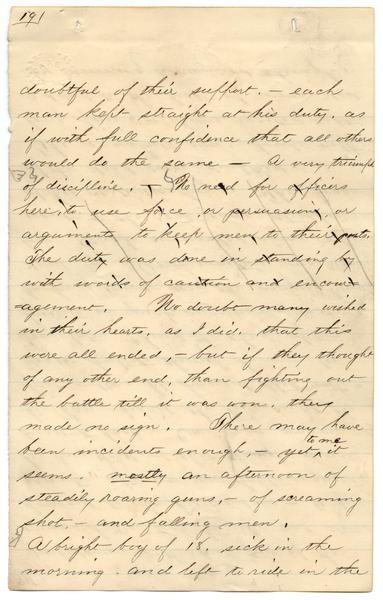 191
doubtful of their support. – each
man kept straight at his duty. as
if with full confidence that all others
would do the same – A very triumph
of discipline. – No need for officers
here, to use force, or persuasion, or
arguments to keep men to their posts.
The duty was done in standing by
with words of caution and encour
=agement. No doubt many wished
in their hearts. as I did. that this
were all ended, – but if they thought
of any other end, than fighting out
the battle till it was won. they
made no sign. There may have
been incidents enough, – yet to me it
seems. mostly an afternoon of
steadily roaring guns, – of screaming
shot, – and falling men.
A bright boy of 18. sick in the
morning. and left to ride in the